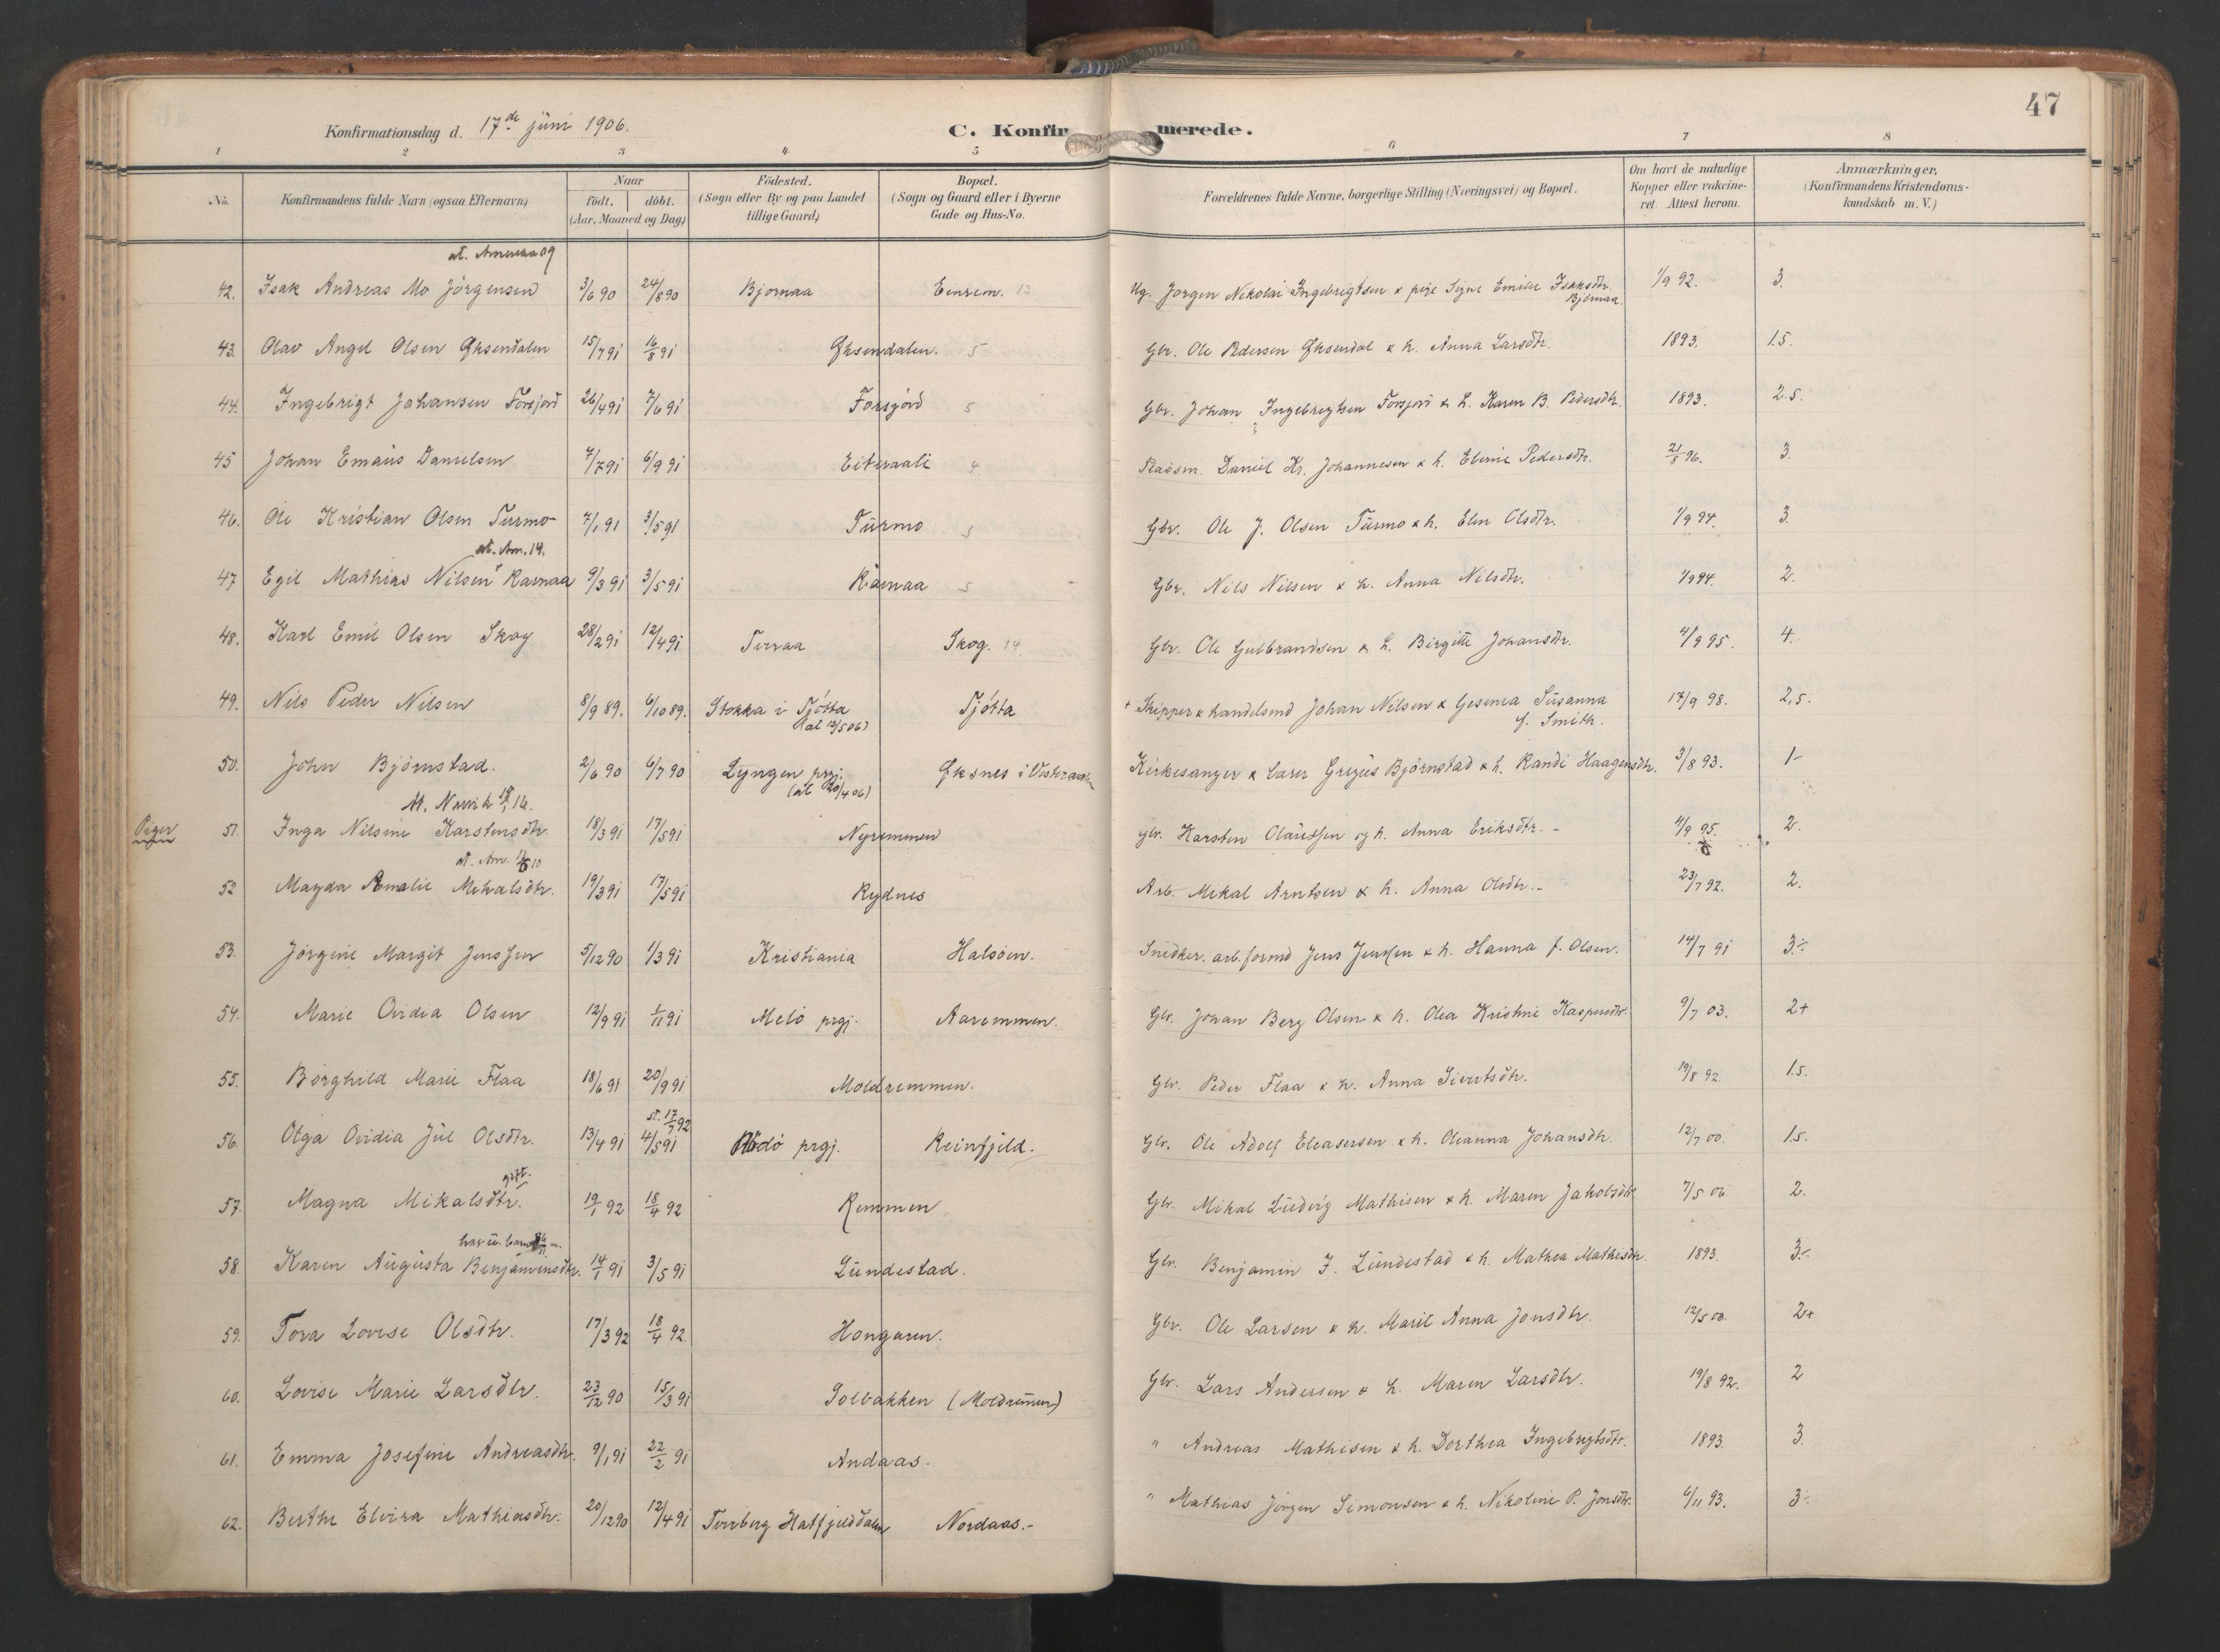 47
Konfirmationsdag d. 17de juni 1906.
C. Konfirmerede.
1 2 3 4 5 6 7 8
No. Konfirmandens fulde Navn (ogsaa Efternavn) Naar født. døbt. (Aar, Maaned og Dag) Fødested. (Sogn eller By og paa Landet tillige Gaard) Bopæl. (Sogn og Gaard eller i Byerne Gade og Hus-No. Forældrenes fulde Navne, borgerlige Stilling (Næringsvei) og Bopæl. Om havt de naturlige Kopper eller vakcineret. Attest herom. Anmærkninger. (Konfirmandens Kristendomskundskab m. V.)
at. Amerika 09
42. Isak Andreas Mo Jörgensen 3/6 90 24/8 90 Bjornaa Einrem. 13 Ug. Jorgen Nikolai Ingebrigtsen & pige Signe Emilie Isaksdtr. Bjornaa. 1/9 92. 3.
43. Olav Angel Olsen Øksendalen 15/7 91 16/8 91 Øksendalen. 5 Gbr. Ole Pedersen Øksendal & h. Anna Larsdtr. 1893. 1.5.
44. Ingebrigt Johansen Forsjord 26/4 91 7/6 91 Forsjord 5 Gbr. Johan Ingebregtsen Forsjord & h. Karen B. Pedersdtr. 1893. 2.5.
45 Johan Emaus Danielsen 7/7 91 6/9 91 Eiteraali 4 Pladsm. Daniel Kr. Johannesen & h. Elerine Pedersdtr. 21/8 96. 3.
46. Ole Kristian Olsen Turmo 7/1 91 3/5 91 Turmo 5 Gbr. Ole J. Olsen Turmo & h. Elen Olsdtr. 1/9 94. 3.
at. Am. 14.
47 Egil Mathias Nilsen Ravnaa 9/3 91 3/5 91 Ravnaa 5 Gbr. Nils Nilsen & h. Anna Nilsdtr. 1/9 94. 2.
48. Karl Emil Olsen Skog 28/2 91 12/4 91 Tveraa Skog. 14. Gbr. Ole Gulbrandsen & h. Birgitte Johansdtr. 4/9 95. 4.
49. Nils Peder Nilsen 8/9 89. 6/10 89. Stokka i Tjötta (at 12/5 06) Tjötta + Skipper & handelsmd Johan Nilsen & Gesema Susanna f. Smith. 17/9 98. 2,5.
50. John Björnstad. 2/6 90 6/7 90 Lyngen prgj. (at 20/4 06) Øksnes i Vesteraalen Kirkesanger & lærer Gregus Björnstad & h. Randi Haagensdtr. 3/8 93. 1-
at. Narvik 16.
Piger 51. Inga Nilsine Karstensdtr. 18/3 91 17/5 91 Nyremmen gbr. Karsten Olaussen og h. Anna Eriksdtr. - 4/9 95. 2.
at. Am. 10
52 Magda Amalie Mikalsdtr. 19/3 91 17/5 91 Rydnes Arb. Mikal Arntsen & h. Anna Olsdtr. - 23/7 92. 2.
53. Jörgine Margit Jenssen 5/12 90 1/3 91 Kristiania Halsöen. Snedker, arb.formd Jens Jenssen & h. Hanna f. Olsen. 14/7 91 3÷
54. Marie Ovidia Olsen 12/9 91 1/11 91 Melö prgj. Aaremmen. Gbr. Johan Berg Olsen & h. Olea Kristine Kaspersdtr. 9/7 03. 2+
55. Borghild Marie Flaa 18/6 91 20/9 91 Moldremmen. Gbr. Peder Flaa & h. Anna Sivertsdtr. 19/8 92. 1.5.
st. 17/7 92
56. Olga Ovidia Jul Olsdtr. 13/4 91 4/5 91 Rödö prgj. Reinfjeld. Gbr. Ole Adolf Eleasersen & h. Oleanna Johansdtr. 12/7 00. 1.5.
gift.
57. Magna Mikalsdtr. 19/1 92 18/4 92 Remmen Gbr. Mikal Ludvig Mathisen & h. Maren Jakobsdtr. 7/5 06 2.
58. Karen Augusta Benjaminsdtr. 14/1 91 3/5 91 Lundestad. Gbr. Benjamin J. Lundestad & h. Mathea Mathisdtr. 1893. 3÷
59. Tora Lovise Olsdtr. 17/3 92 18/4 92. Hongaren. Gbr. Ole Larsen & h. Marie Anna Jonsdtr. 12/5 00. 2+
60. Lovise Marie Larsdtr. 23/12 90 15/3 91 Solbakken (Moldremmen) Gbr. Lars Andersen & h. Maren Larsdtr. 19/8 92. 2
61. Emma Josefine Andreasdtr. 9/1 91 22/2 91 Andaas. " Andreas Mathisen & h. Dorthea Ingebrigtsdtr. 1893. 3.
62. Berthe Elvira Mathiasdtr. 20/12 90 12/4 91 Tverberg Hatfjelddalen Nordaas. - " Mathias Jörgen Simonsen & h. Nikoline P. Jonsdtr. 6/11 93. 3÷